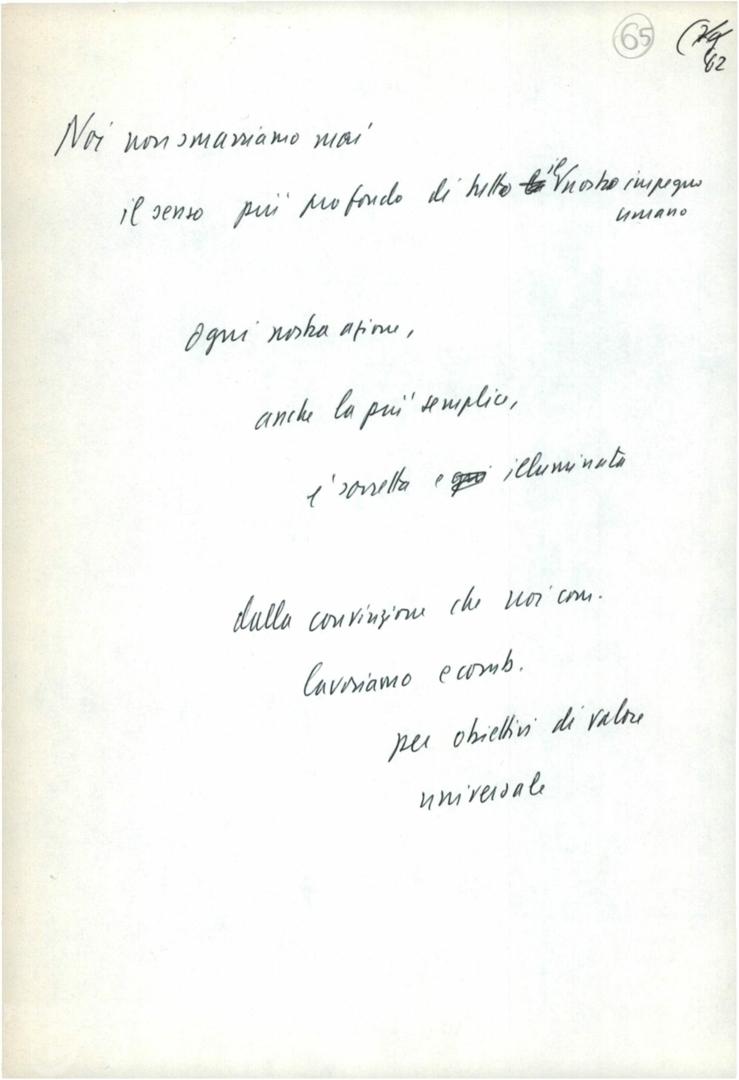 65
62
Noi non smarriamo mai
il senso più profondo di tutto il nostro impegno
umano
ogni nostra azione,
anche la più semplice,
è sorretta e illuminata
dalla convinzione che noi com.
lavoriamo e comb.
per obiettivi di valore
universale